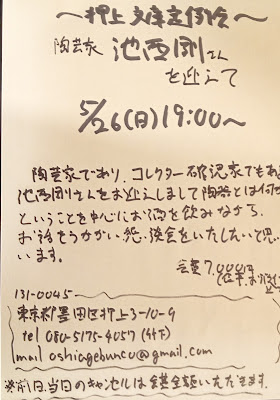 〜押上文庫定例会〜
陶芸家 池西剛さん
を迎えて
5/26(日)19:00〜
陶芸家であり、コレクター確認家でもあ
池西剛さんをお迎えしまして陶器とは何
ということを中心にお酒を飲みながら、
お話をうかがい、懇談会をいたしたいと思
います。
会費7,000円
131-0045
東京都墨田区押上3-10-9
tel 080-5175-4057(竹下)
mail oshiagebunco@gmail.com
※前日、当日のキャンセルは全額いただきます。